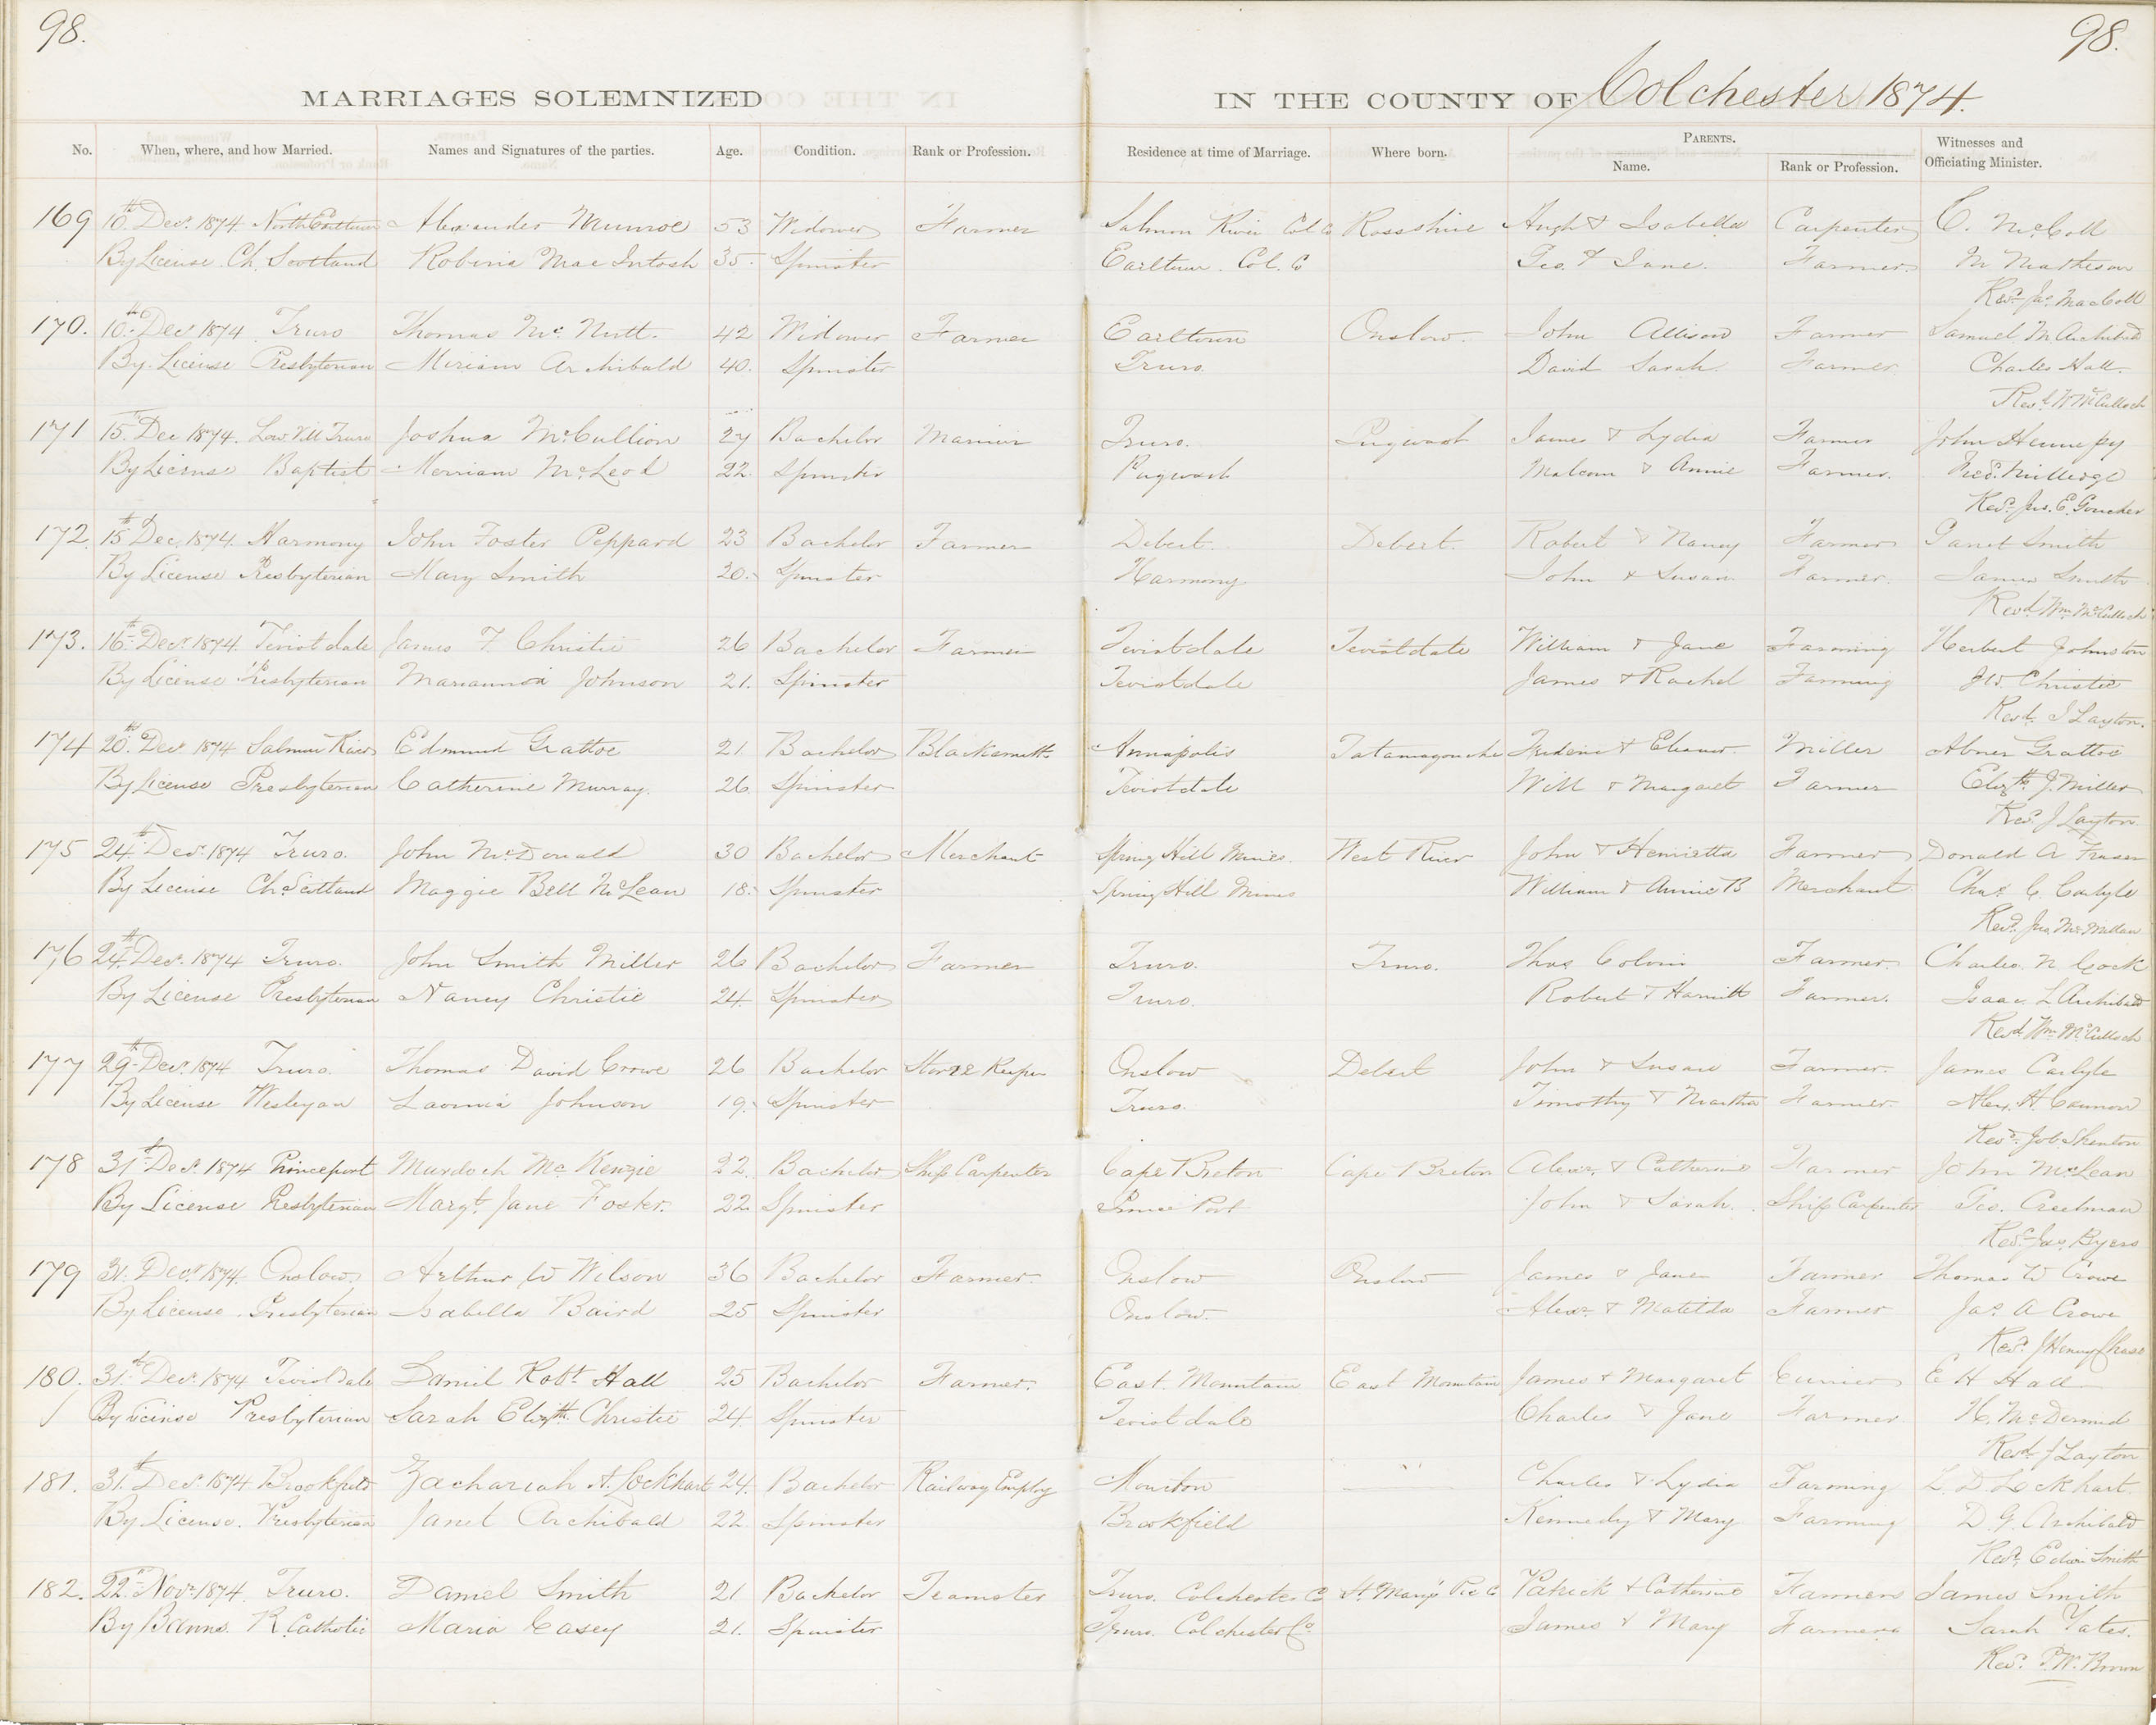 98.
98.
MARRIAGES SOLEMNIZED IN THE COUNTY OF Colchester 1874.
No. When, where, and how Married. Names and Signatures of the parties. Age. Condition. Rank or Profession. Residence at time of Marriage. Where born. PARENTS. Name. Rank or Profession. Witnesses and Officiating Minister.
169 10th Decr. 1874 North Earltown Alexander Munroe 53 Widower Farmer Salmon River Col Co Rossshire Hugh & Isabella Carpenter C. McColl
By License Ch. Scotland Robina MacIntosh 35 Spinster Earltown. Col. Co Geo. & Jane. Farmer. M Matheson
Revd. Jas. MacColl
170. 10th Decr 1874 Truro Thomas Mc Nutt. 42 Widower Farmer Earltown Onslow. John Allison Farmer Samuel M Archibald
By License Presbyterian Miriam Archibald 40. Spinster Truro. David Sarah Farmer Charles Hall.
Revd Wm McCulloch
171 15th Dec 1874. Low. Vill Truro Joshua McCullion 27 Bachelor Truro. Pugwash James & Lydia Farmer John
By License Baptist Merriam McLeod 22. Spinster Pugwash Malcom & Annie Farmer. Fred.
Revd. Jas. E. Goucher
172. 15th Dec. 1874. Harmony John Foster Peppard 23 Bachelor Farmer Debert. Debert. Robert & Nancy Farmer Janet Smith
By License Presbyterian Mary Smith 20. Spinster Harmony John & Susan Farmer. James Smith
Revd Wm. McCulloch
173. 16th Decr. 1874. Teviotdale James F Christie 26 Bachelor Farmer Teviotdale Teviotdale William & Jane Farming Herbert Johnston
By License Presbyterian Johnson 21. Spinster Teviotdale James & Rachel Farming J W Christie
Revd. J Layton.
174 20th Decr 1874 Salmon River Edmund Grattoe 21 Bachelor Blacksmith Annapolis Tatamagouche & Eleanor Miller Abner Grattoe
By License Presbyterian Catherine Murray. 26 Spinster Teviotdale Will & Margaret Farmer Elizth. J. Miller
Revd. J Layton
175 24th Decr. 1874 Truro. John McDonald 30 Bachelor Merchant Spring Hill Mines. West River John & Henrietta Farmer Donald A Fraser
By License Ch. Scotland Maggie Bell McLean 18. Spinster Spring Hill Mines William & Annie B Merchant Chas. C. Carlyle
Revd. Jno McMillan
176 24th Decr. 1874 Truro. John Smith Miller 26 Bachelor Farmer Truro. Truro. Thos Farmer. Charles N Cock
By License Presbyterian Nancy Christie 24. Spinster Truro. Robert & Farmer. Isaac L Archibald
Revd Wm. McCulloch
177 29th Decr. 1874 Truro. Thomas David Crowe 26 Bachelor Store Keeper Onslow Debert John & Susan Farmer. James Carlyle
By License Wesleyan Johnson 19. Spinster Truro. Timothy & Martha Farmer. Alex. H. Connor
Revd. Job Shenton
178 31st Decr. 1874 Princeport Murdoch McKenzie 22 Bachelor Ship Carpenter Cape Breton Cape Breton Alexr. & Catherine Farmer John McLean
By License Presbyterian Margt. Jane Foster. 22 Spinster Prince Port John & Sarah. Ship Carpenter Geo. Creelman
Revd. Jas Byers
179 31. Decr 1874. Onslow. Arthur W Wilson 36 Bachelor Farmer. Onslow Onslow James & Jane Farmer Thomas W Crowe
By License. Presbyterian Isabella Baird 25 Spinster Onslow. Alexr. & Matilda Farmer Jas. A Crowe
Revd. J Henry Chase
180. 31st Decr. 1874 Teviotdale Daniel Robt Hall 25 Bachelor Farmer. East Mountain East Mountain James & Margaret Currier E H Hall
By License Presbyterian Sarah Elizth. Christie 24. Spinster Teviotdale Charles & Jane Farmer H. McDermid
Revd. J Layton
181. 31st Decr. 1874 Brookfield Zachariah A. Lockhart 24. Bachelor Railway Employ Moncton Charles & Lydia Farming L. D. Lockhart.
By License. Presbyterian Janet Archibald 22. Spinster Brookfield Kennedy & Mary Farming D. G. Archibald
Revd. Edwin Smith
182. 22nd Novr. 1874. Truro. Daniel Smith 21 Bachelor Teamster Truro. Colchester Co St. Marys Pic Co Patrick & Catherine Farmer James Smith
By Banns. R. Catholic Maria Casey 21. Spinster Truro. Colchester Co. James & Mary Farmer Sarah Yates.
Revd. P. W. Brown